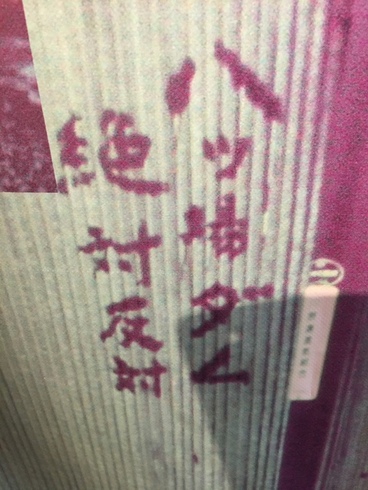 八ッ場ダム
絶対反対